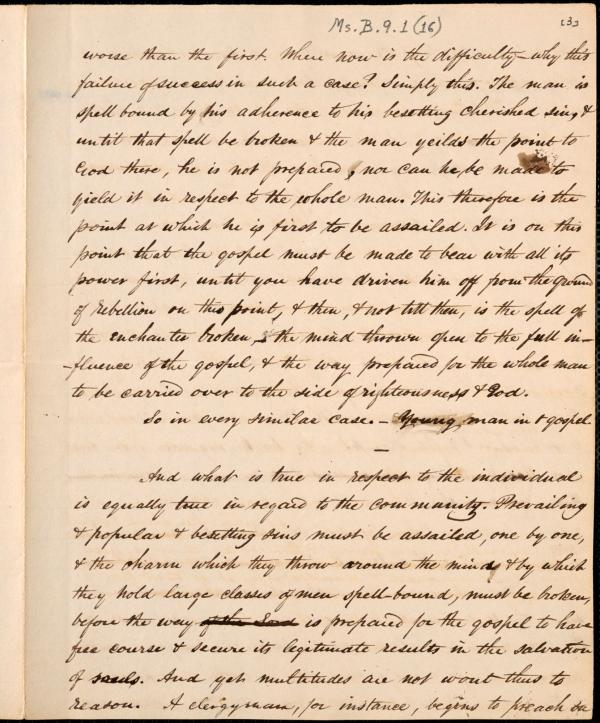 Ms. B. 9. 1 (16)
(3)
worse than the first. Where now is the difficulty - why this
failure of success in such a case? Simply this. The man is
spell bound by his adherence to his besetting cherished sin, &
until that spell be broken & the man yeilds the point to
God there, he is not prepared, nor can he, be made to
yield it in respect to the whole man. This therefore is the
point at which he is first to be assailed. It is on this
point that the gospel must be made to bear with all its
power first, until you have driven him off from the ground
of rebellion on this point, & then, & not till then, is the spell of
the enchanter broken, & the mind thrown open to the full in-
-fluence of the gospel, & the way prepared for the whole man
to be carried over to the side of righteousness & God.
So in every similar case. - Young man in & gospel.
And what is true in respect to the individual
is equally true in regard to the community. Prevailing
& popular & besetting sins must be assailed, one by one,
& the charm which they throw around the mind, & by which
they hold large classes of men spell-bound, must be broken,
before the way of the Lord is prepared for the gospel to have
free course & secure its legitimate results in the salvation
of souls. And yet multitudes are not wont thus to
reason. A clergyman, for instance, begins to preach on